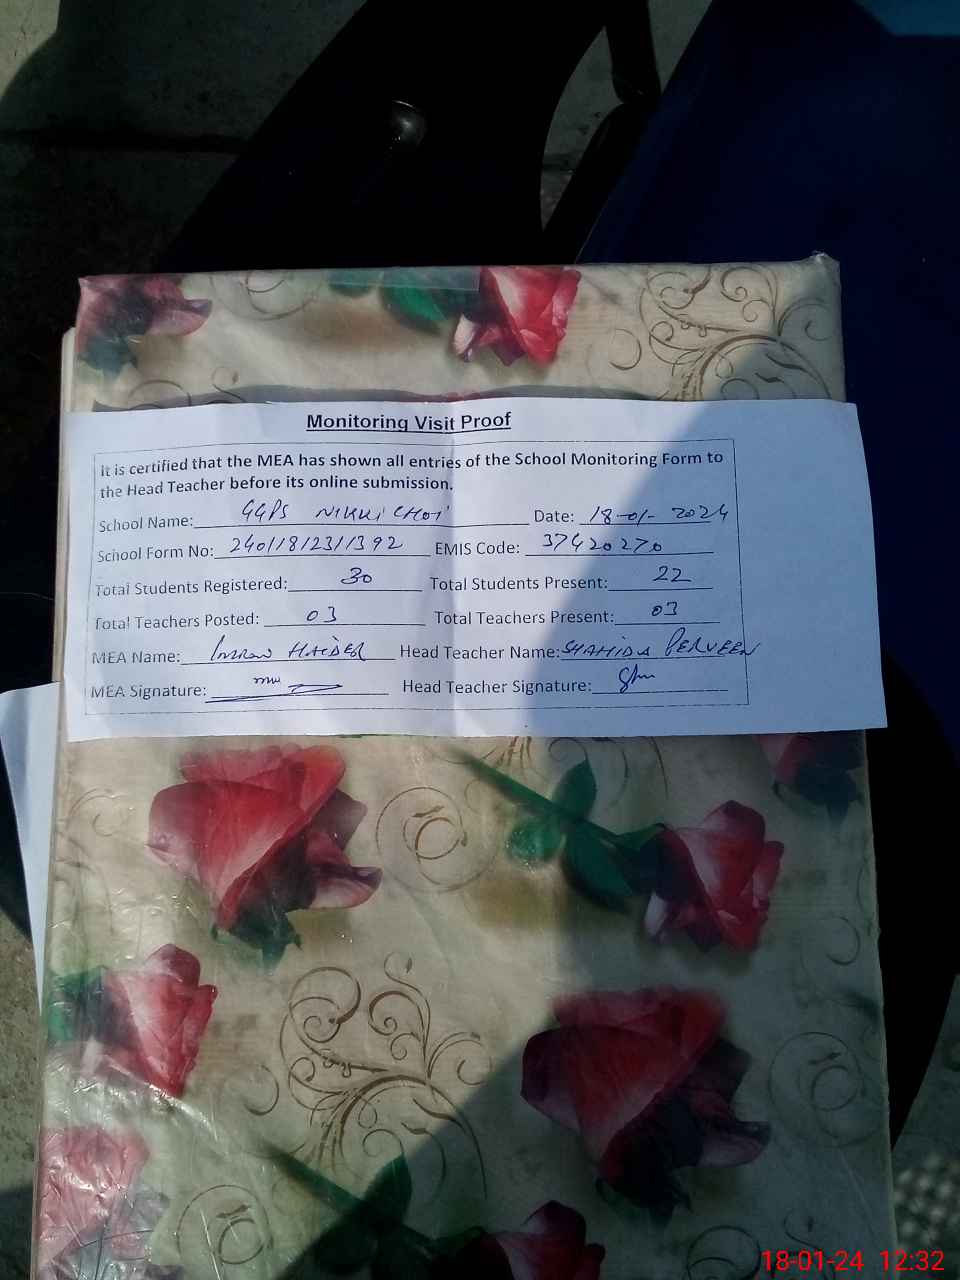 Monitoring Visit Proof
It is certified that the MEA has shown all entries of the School Monitoring Form to
the Head Teacher before its online submission.
School Name: GGPS NIKKI CHOTI Date: 18-01-2024
School Form No: 24011812311392 EMIS Code: 37420270
Total Students Registered: 30 Total Students Present: 22
Total Teachers Posted: 03 Total Teachers Present: 03
MEA Name: Imran HAIDER Head Teacher Name: SHAHIDA PERVEEN
MEA Signature: Head Teacher Signature:
18-01-24 12:32